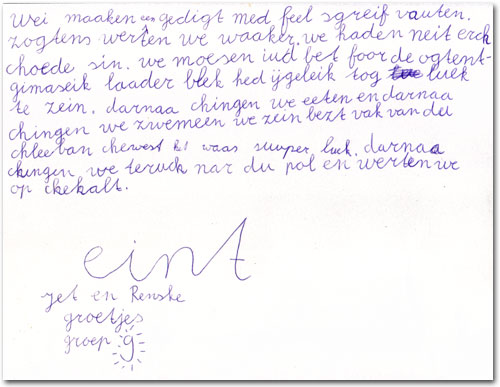 Wei maaken een gedigt med feel sgreif vauten.
zogtens werten we waaker. we haden neit erch
choede sin. we moesen iud bet foor de ogtent-
gimaseik laader blek hed ijgeleik tog luek
te zein. darnaa chingen we eeten en darnaa
chingen we zwemeen we zein bezt vak van du
chleeban cheweest het waas suuper luek. darnaa
chingen we teruck nar du pol en werten we
op ikekalt.
eint
Jet en Renske
groetjes
groep g